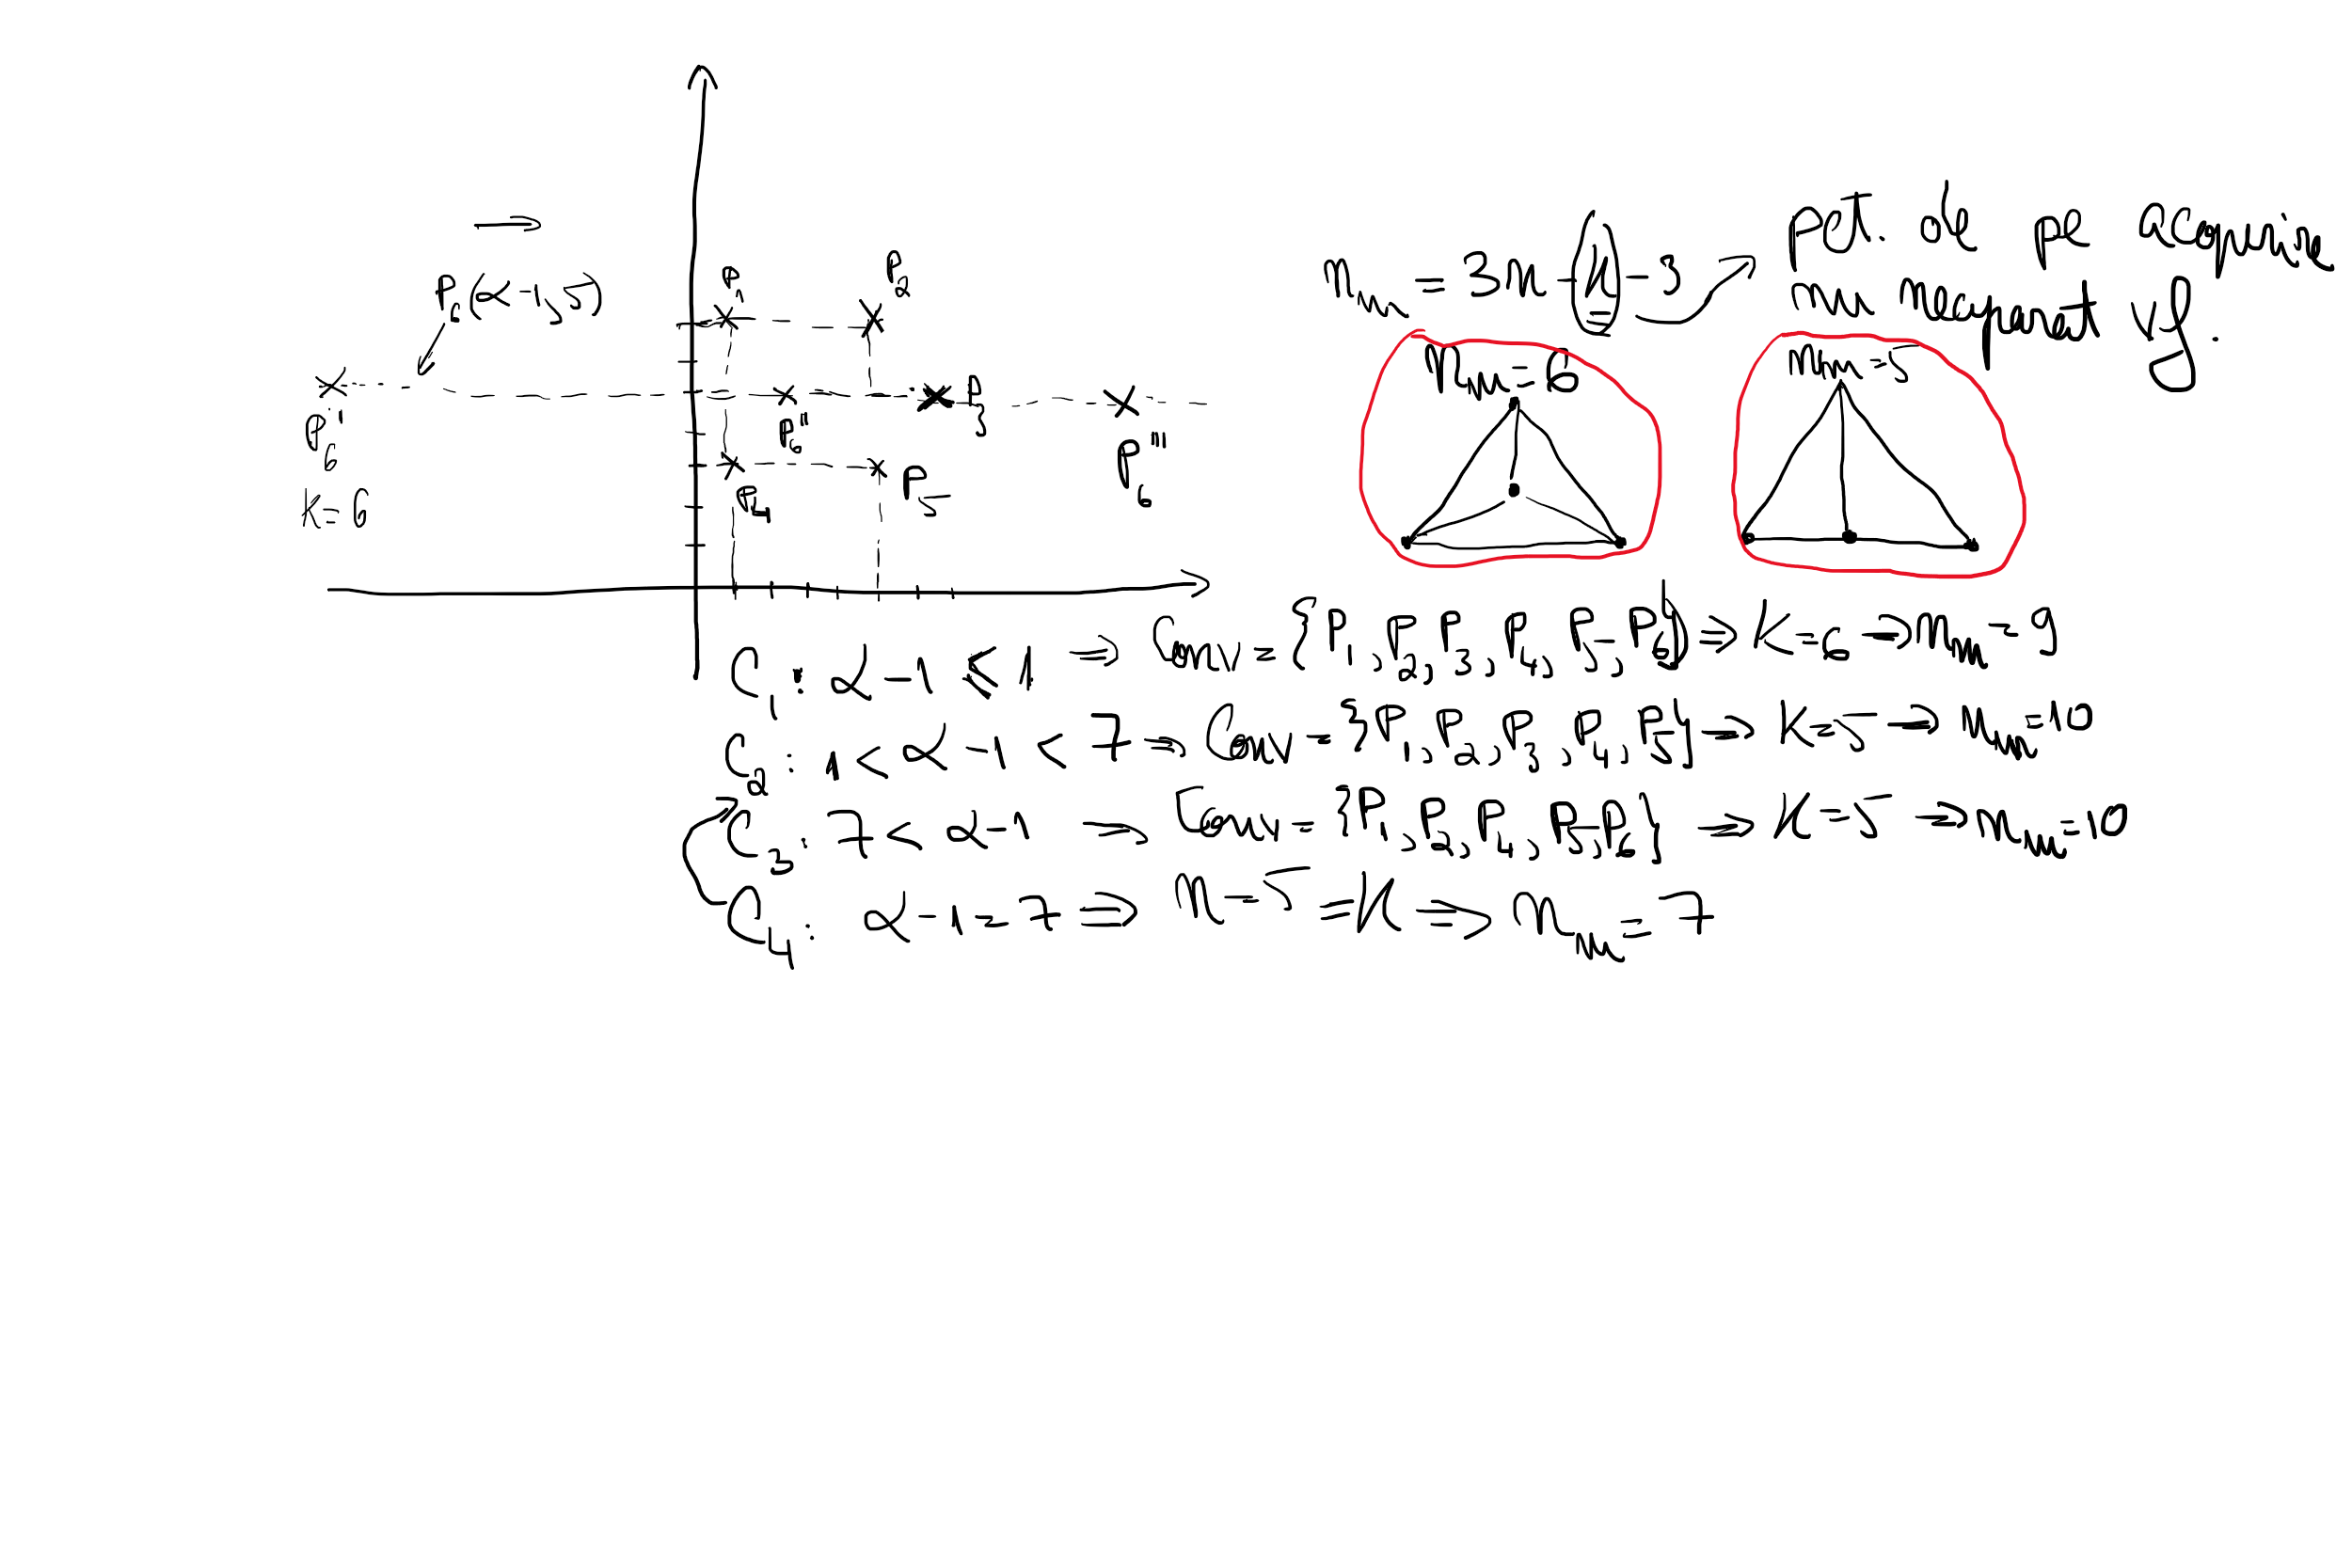 P₁
P₂
P₆(α-1,5)
P₃
P₆'
P₆''
P₆'''
P₄
P₅
k=6
nₘ = 3n-k-3
pct. de pe acoperire
nu neaparat vf.
nₘ=6
nₘ=5
C₁: α-1 ≤ 1 ⇒ Conv = {P₁,P₂,P₃,P₄,P₅,P₆} ⇒ K=6 ⇒ nₘ=9
C₂: 1 < α-1 < 7 ⇒ Conv = {P₁,P₂,P₃,P₄,P₅} ⇒ K=5 ⇒ nₘ=10
C₃: 7 < α-1 ⇒ Conv = {P₁,P₂,P₄,P₅,P₆} ⇒ K=5 ⇒ nₘ=10
C₄: α-1=7 ⇒ n=5=K ⇒ nₘ=7